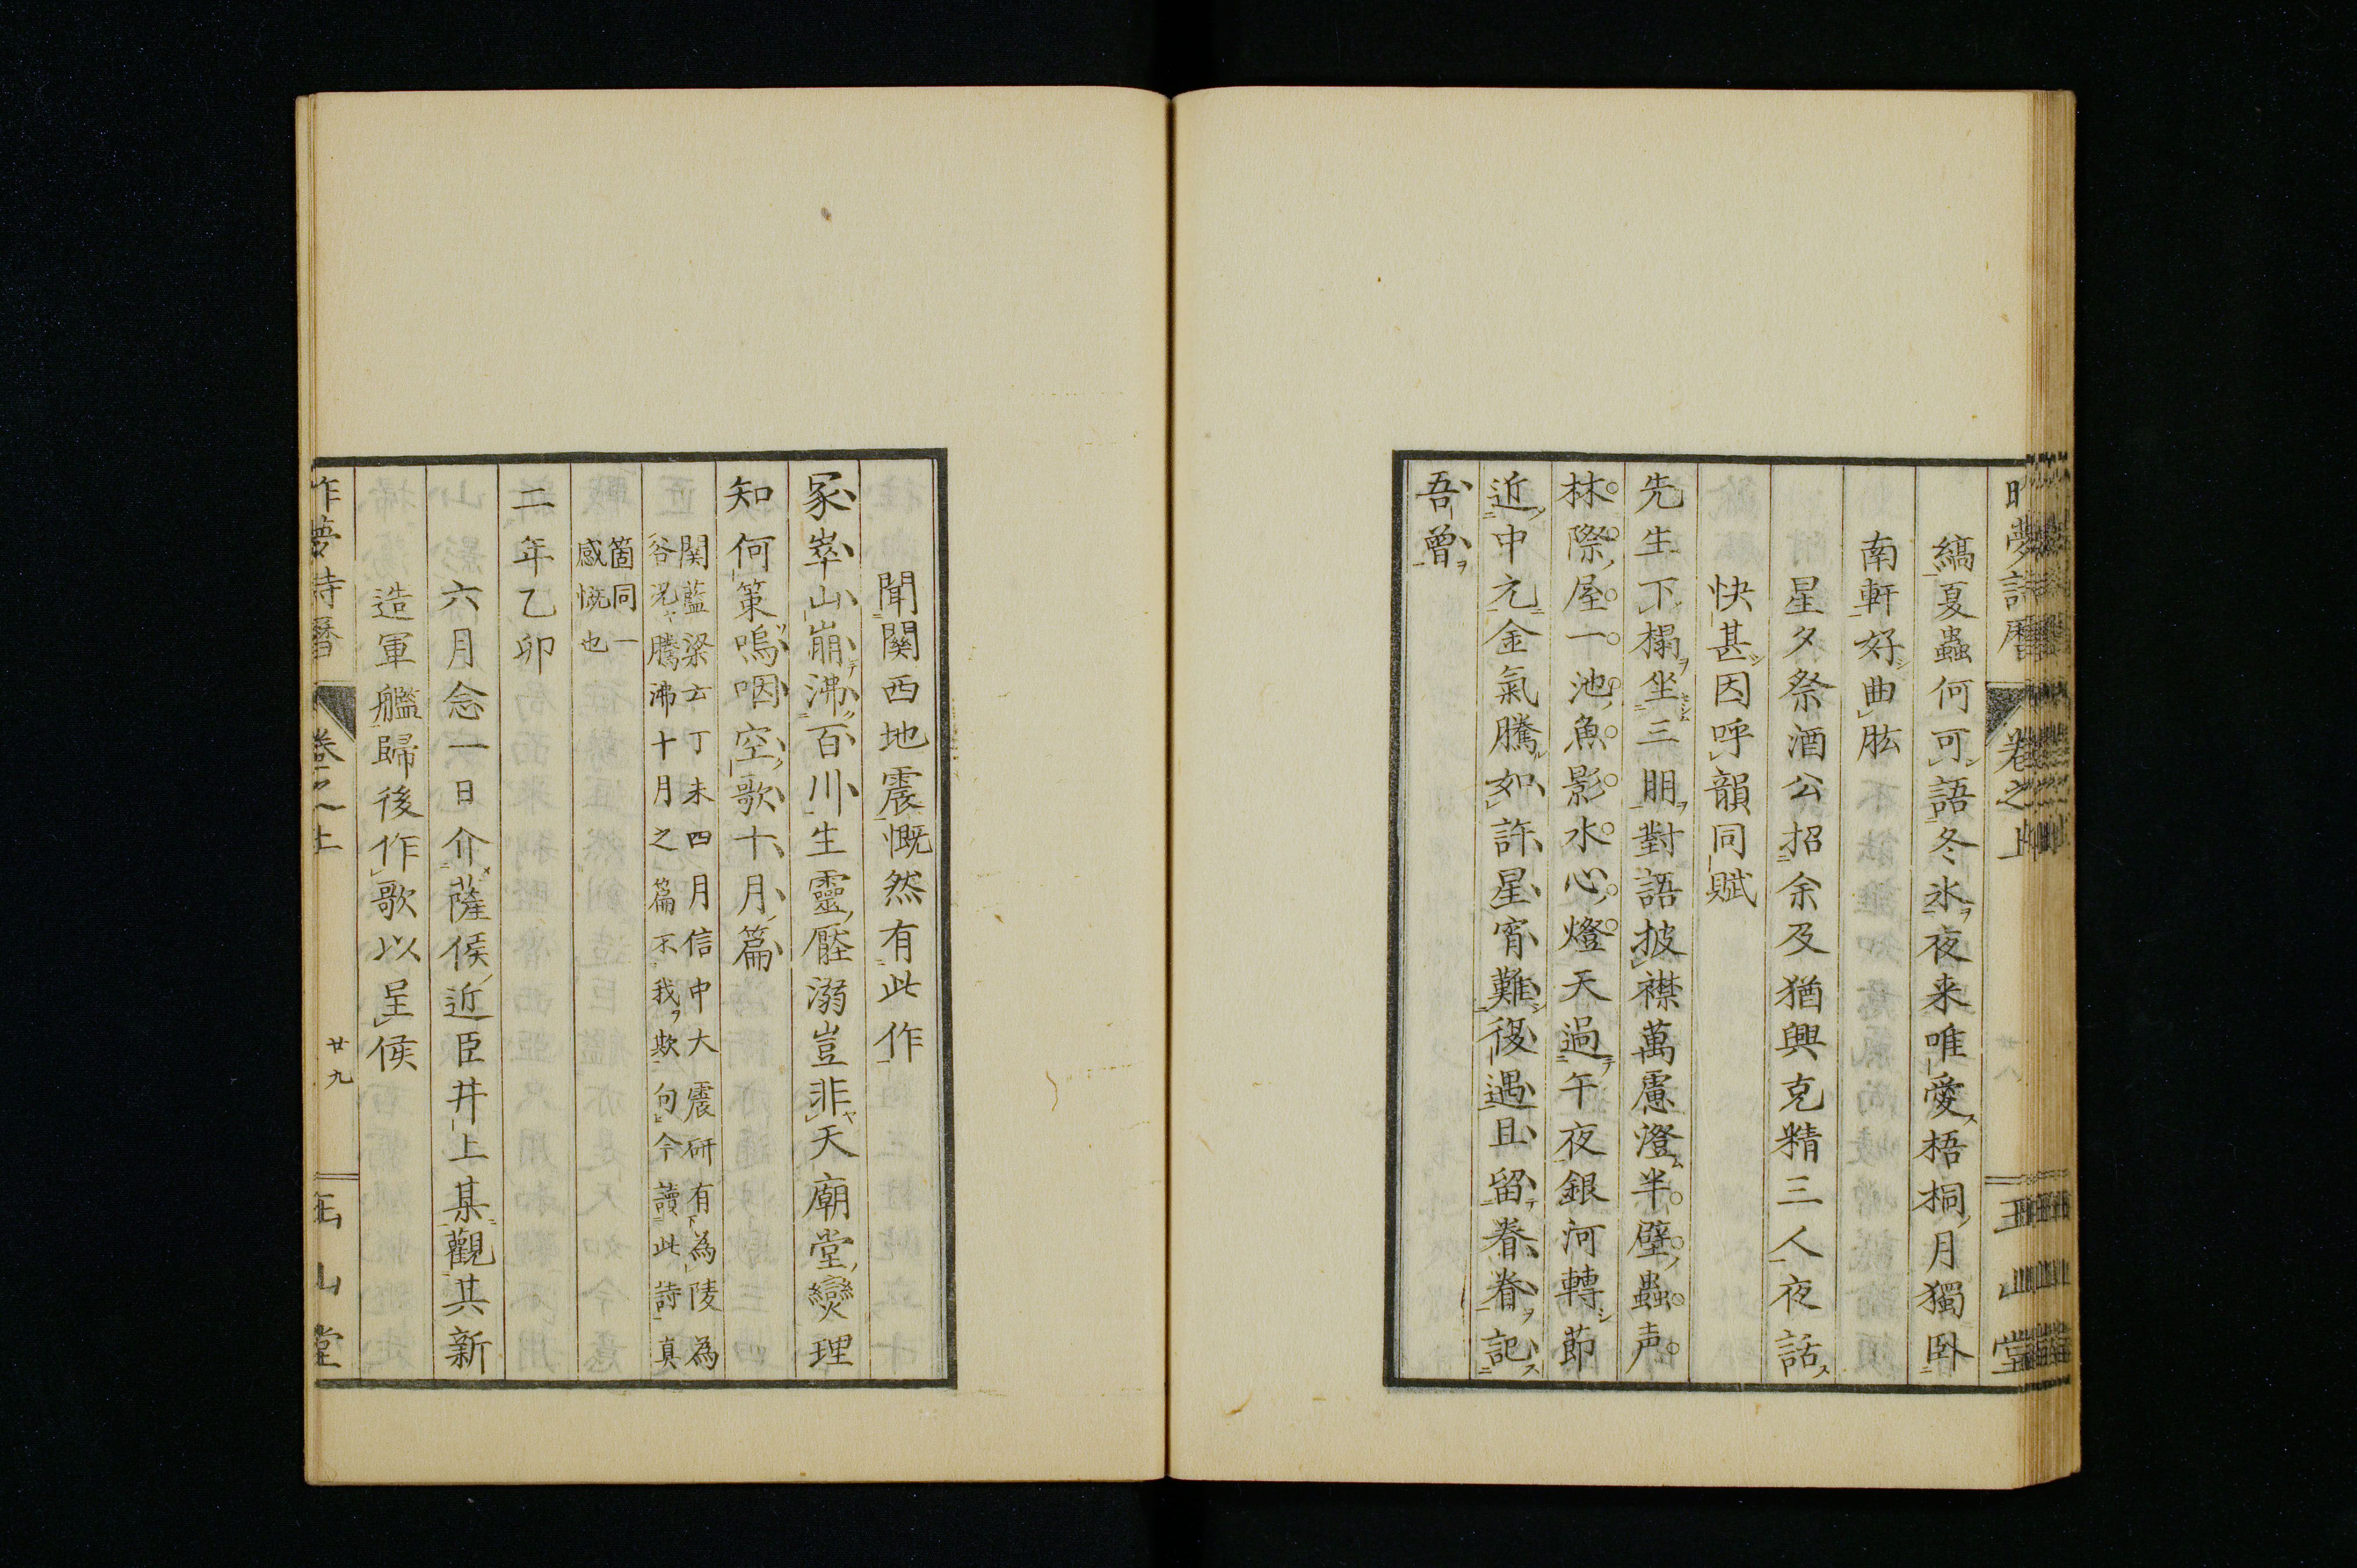 昨夢詩曆 卷之上 玉山堂
縞夏蟲何可語冬氷夜来唯愛梧桐月獨卧
南軒好曲肱
星夕祭酒公招余及猶興克精三人夜話
快甚因呼韻同賦
先生下榻坐三朋對語披襟萬慮澄半壁蟲声
林際屋一池魚影水心燈天過午夜銀河轉節
近中元金氣騰如許星宵難復遇且留眷眷記
吾曾
聞關西地震慨然有此作
冢崒山崩沸百川生靈壓溺豈非天廟堂燮理
知何策嗚咽空歌十月篇
関藍梁云丁未四月信中大震研有為陵為
谷況騰沸十月之篇不我欺句今讀此詩真
箇同一
感慨也
二年乙卯
六月念一日介薩侯近臣井上某觀其新
造軍艦歸後作歌以呈侯
昨夢詩曆 卷之上 廿九 玉山堂